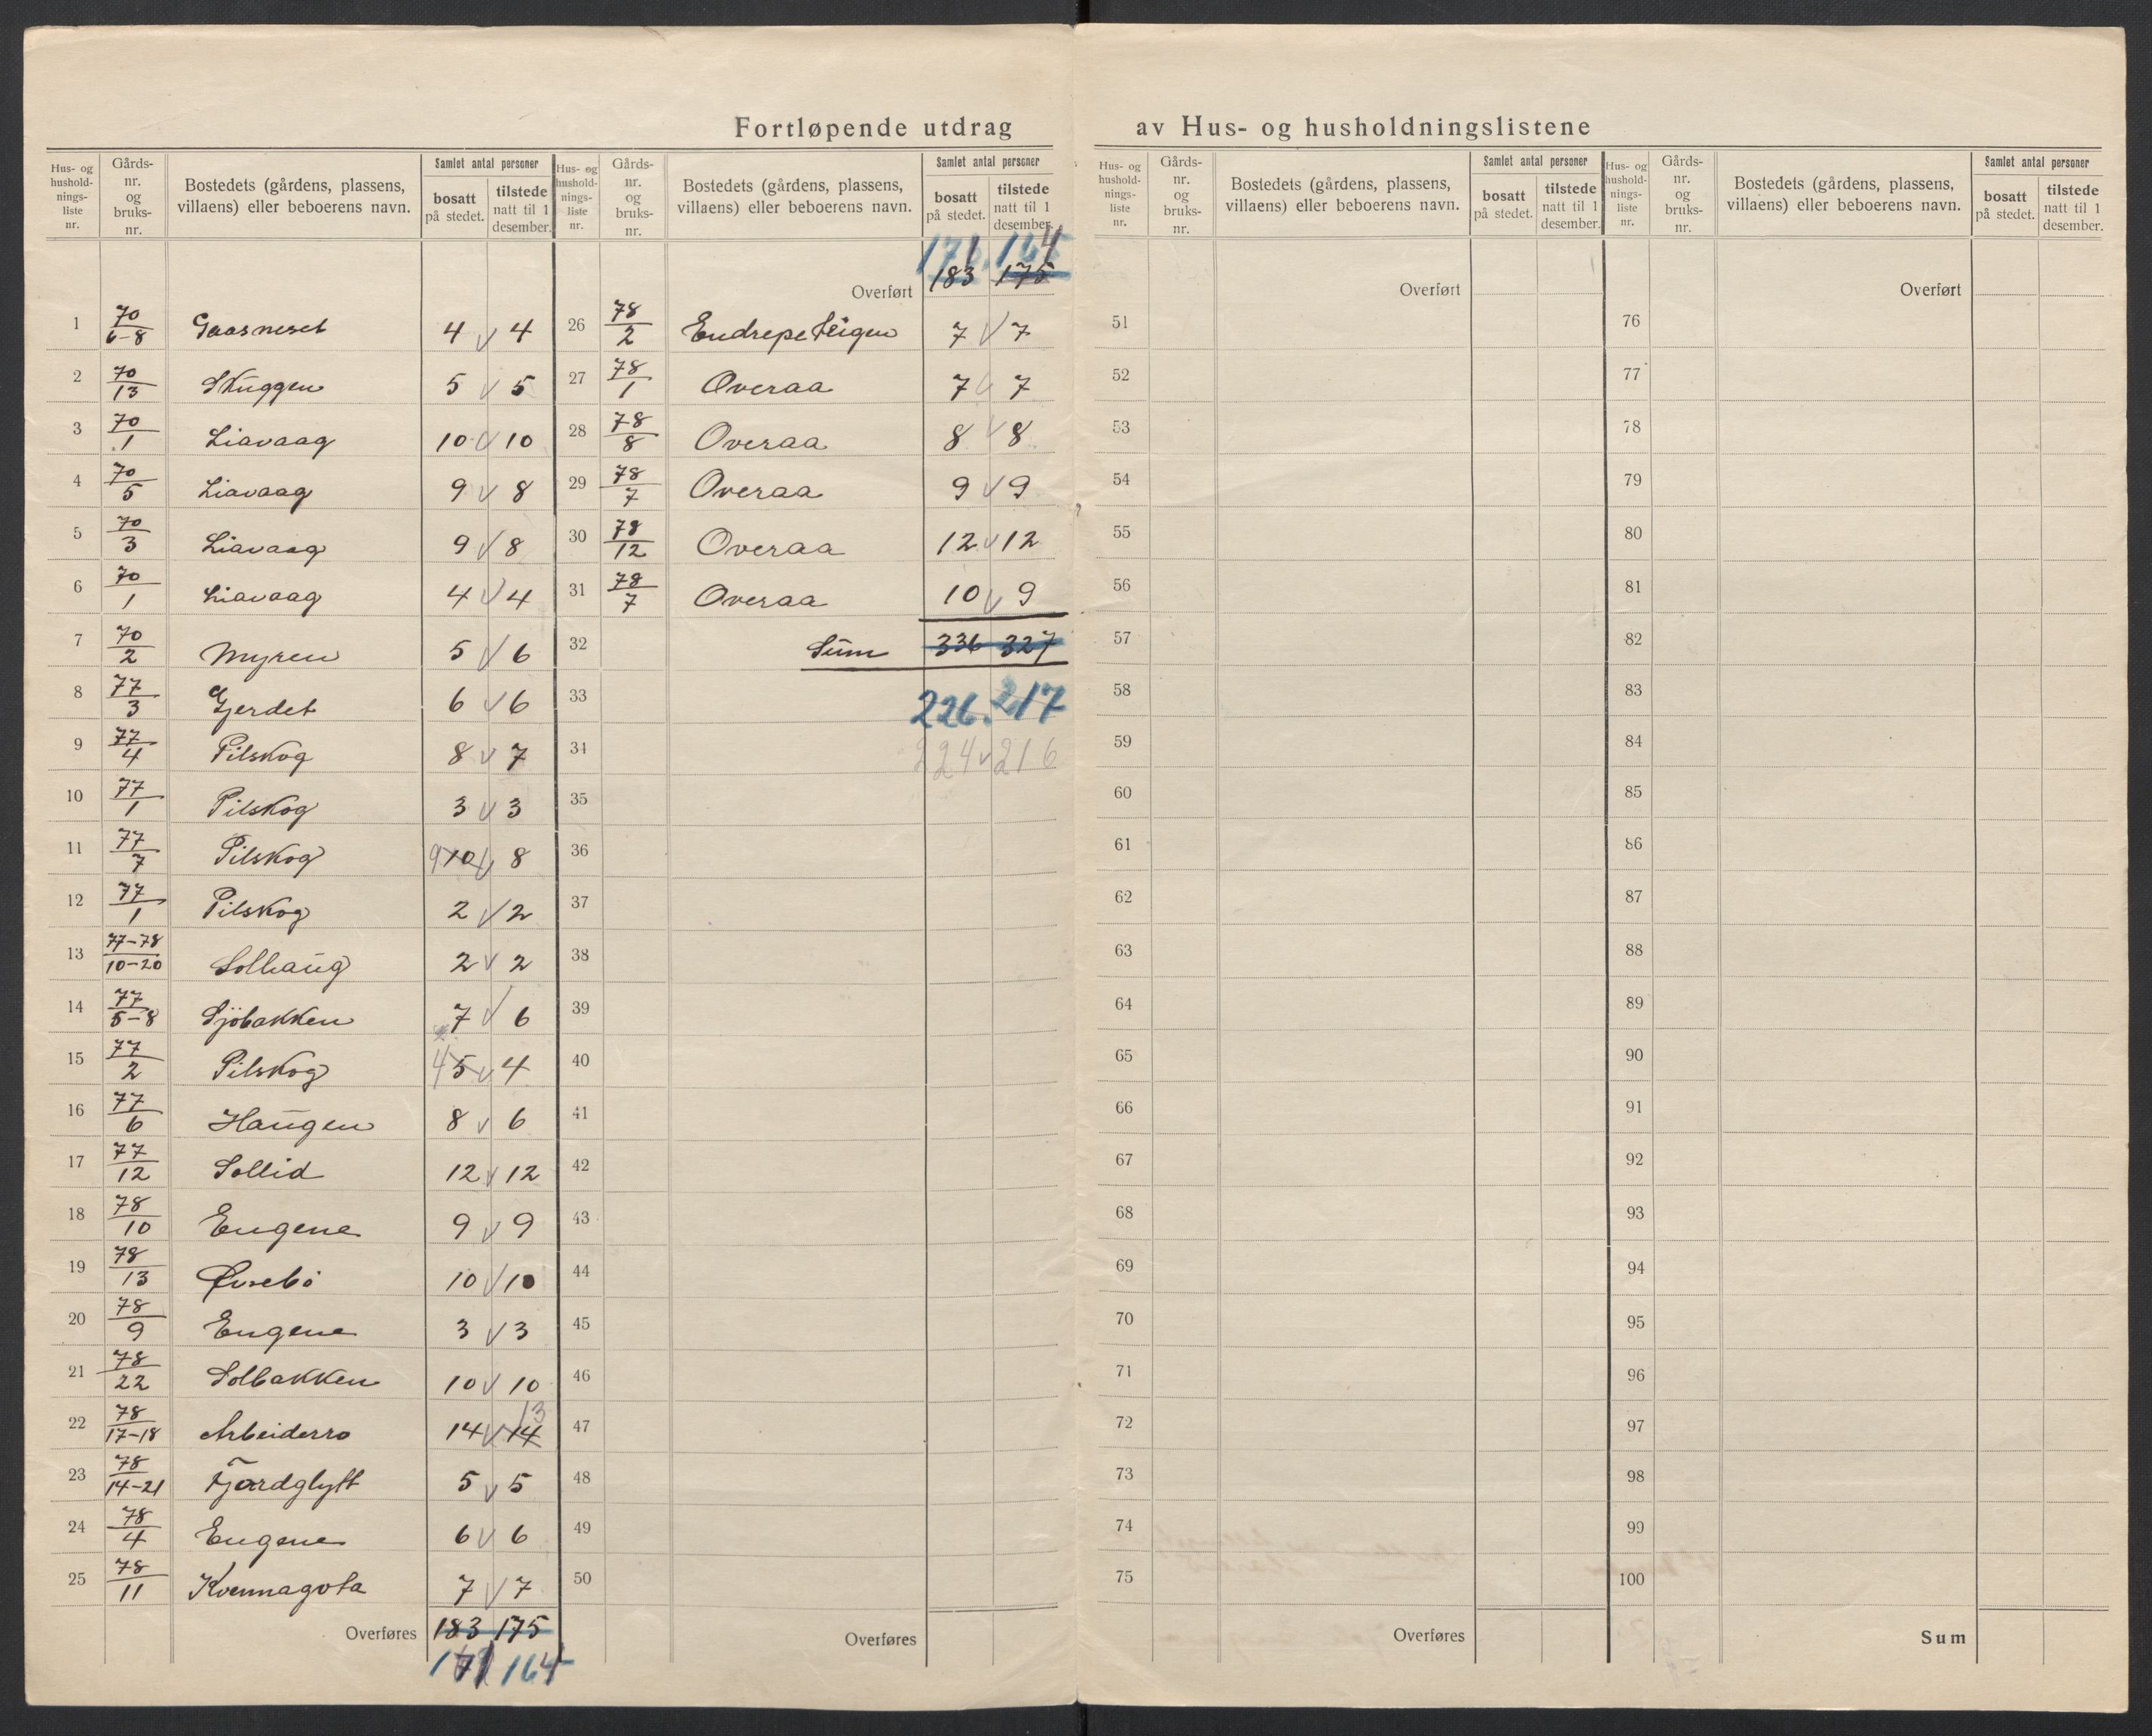 Fortløpende utdrag av Hus- og husholdningslistene
Hus- og hushold-nings-liste nr. | Gårds-nr. og bruks-nr. | Bostedets (gårdens, plassens, villaens) eller beboerens navn. | Samlet antal personer | bosatt på stedet. | tilstede natt til 1 desember.
1 70/6-8 Gaasneset 4 v 4
2 70/13 Skuggen 5 v 5
3 70/1 Liavaag 10 v 10
4 70/5 Liavaag 9 v 8
5 70/3 Liavaag 9 v 8
6 70/1 Liavaag 4 v 4
7 70/2 Myren 5 v 6
8 77/3 Gjerdet 6 v 6
9 77/4 Pilskog 8 v 7
10 77/1 Pilskog 3 v 3
11 77/7 Pilskog 9 10 v 8
12 77/1 Pilskog 2 v 2
13 77-78/10-20 Solhaug 2 v 2
14 77/5-8 Sjöbakken 7 v 6
15 77/2 Pilskog 4 5 v 4
16 77/6 Haugen 8 v 6
17 77/12 Sollid 12 v 12
18 78/10 Eugene 9 v 9
19 78/13 Øvrebö 10 v 10
20 78/9 Eugene 3 v 3
21 78/22 Solbakken 10 v 10
22 78/17-18 Arbeiderro 14 v 14 13
23 78/14-21 Fjordglytt 5 v 5
24 78/4 Eugene 6 v 6
25 78/11 Kvennagota 7 v 7
Overføres 183 175
171 164
Hus- og hushold-nings-liste nr. | Gårds-nr. og bruks-nr. | Bostedets (gårdens, plassens, villaens) eller beboerens navn. | Samlet antal personer | bosatt på stedet. | tilstede natt til 1 desember.
171. 164
Overført 183 175
26 78/2 Endrepeteigen 7 v 7
27 78/1 Overaa 7 v 7
28 78/8 Overaa 8 v 8
29 78/7 Overaa 9 v 9
30 78/12 Overaa 12 v 12
31 78/7 Overaa 10 v 9
32 Sum 336 327
33 226. 217
34 224 v 216
35
36
37
38
39
40
41
42
43
44
45
46
47
48
49
50
Overføres
Hus- og hushold-nings-liste nr. | Gårds-nr. og bruks-nr. | Bostedets (gårdens, plassens, villaens) eller beboerens navn. | Samlet antal personer | bosatt på stedet. | tilstede natt til 1 desember.
Overført
51
52
53
54
55
56
57
58
59
60
61
62
63
64
65
66
67
68
69
70
71
72
73
74
75
Overføres
Hus- og hushold-nings-liste nr. | Gårds-nr. og bruks-nr. | Bostedets (gårdens, plassens, villaens) eller beboerens navn. | Samlet antal personer | bosatt på stedet. | tilstede natt til 1 desember.
Overført
76
77
78
79
80
81
82
83
84
85
86
87
88
89
90
91
92
93
94
95
96
97
98
99
100
Sum